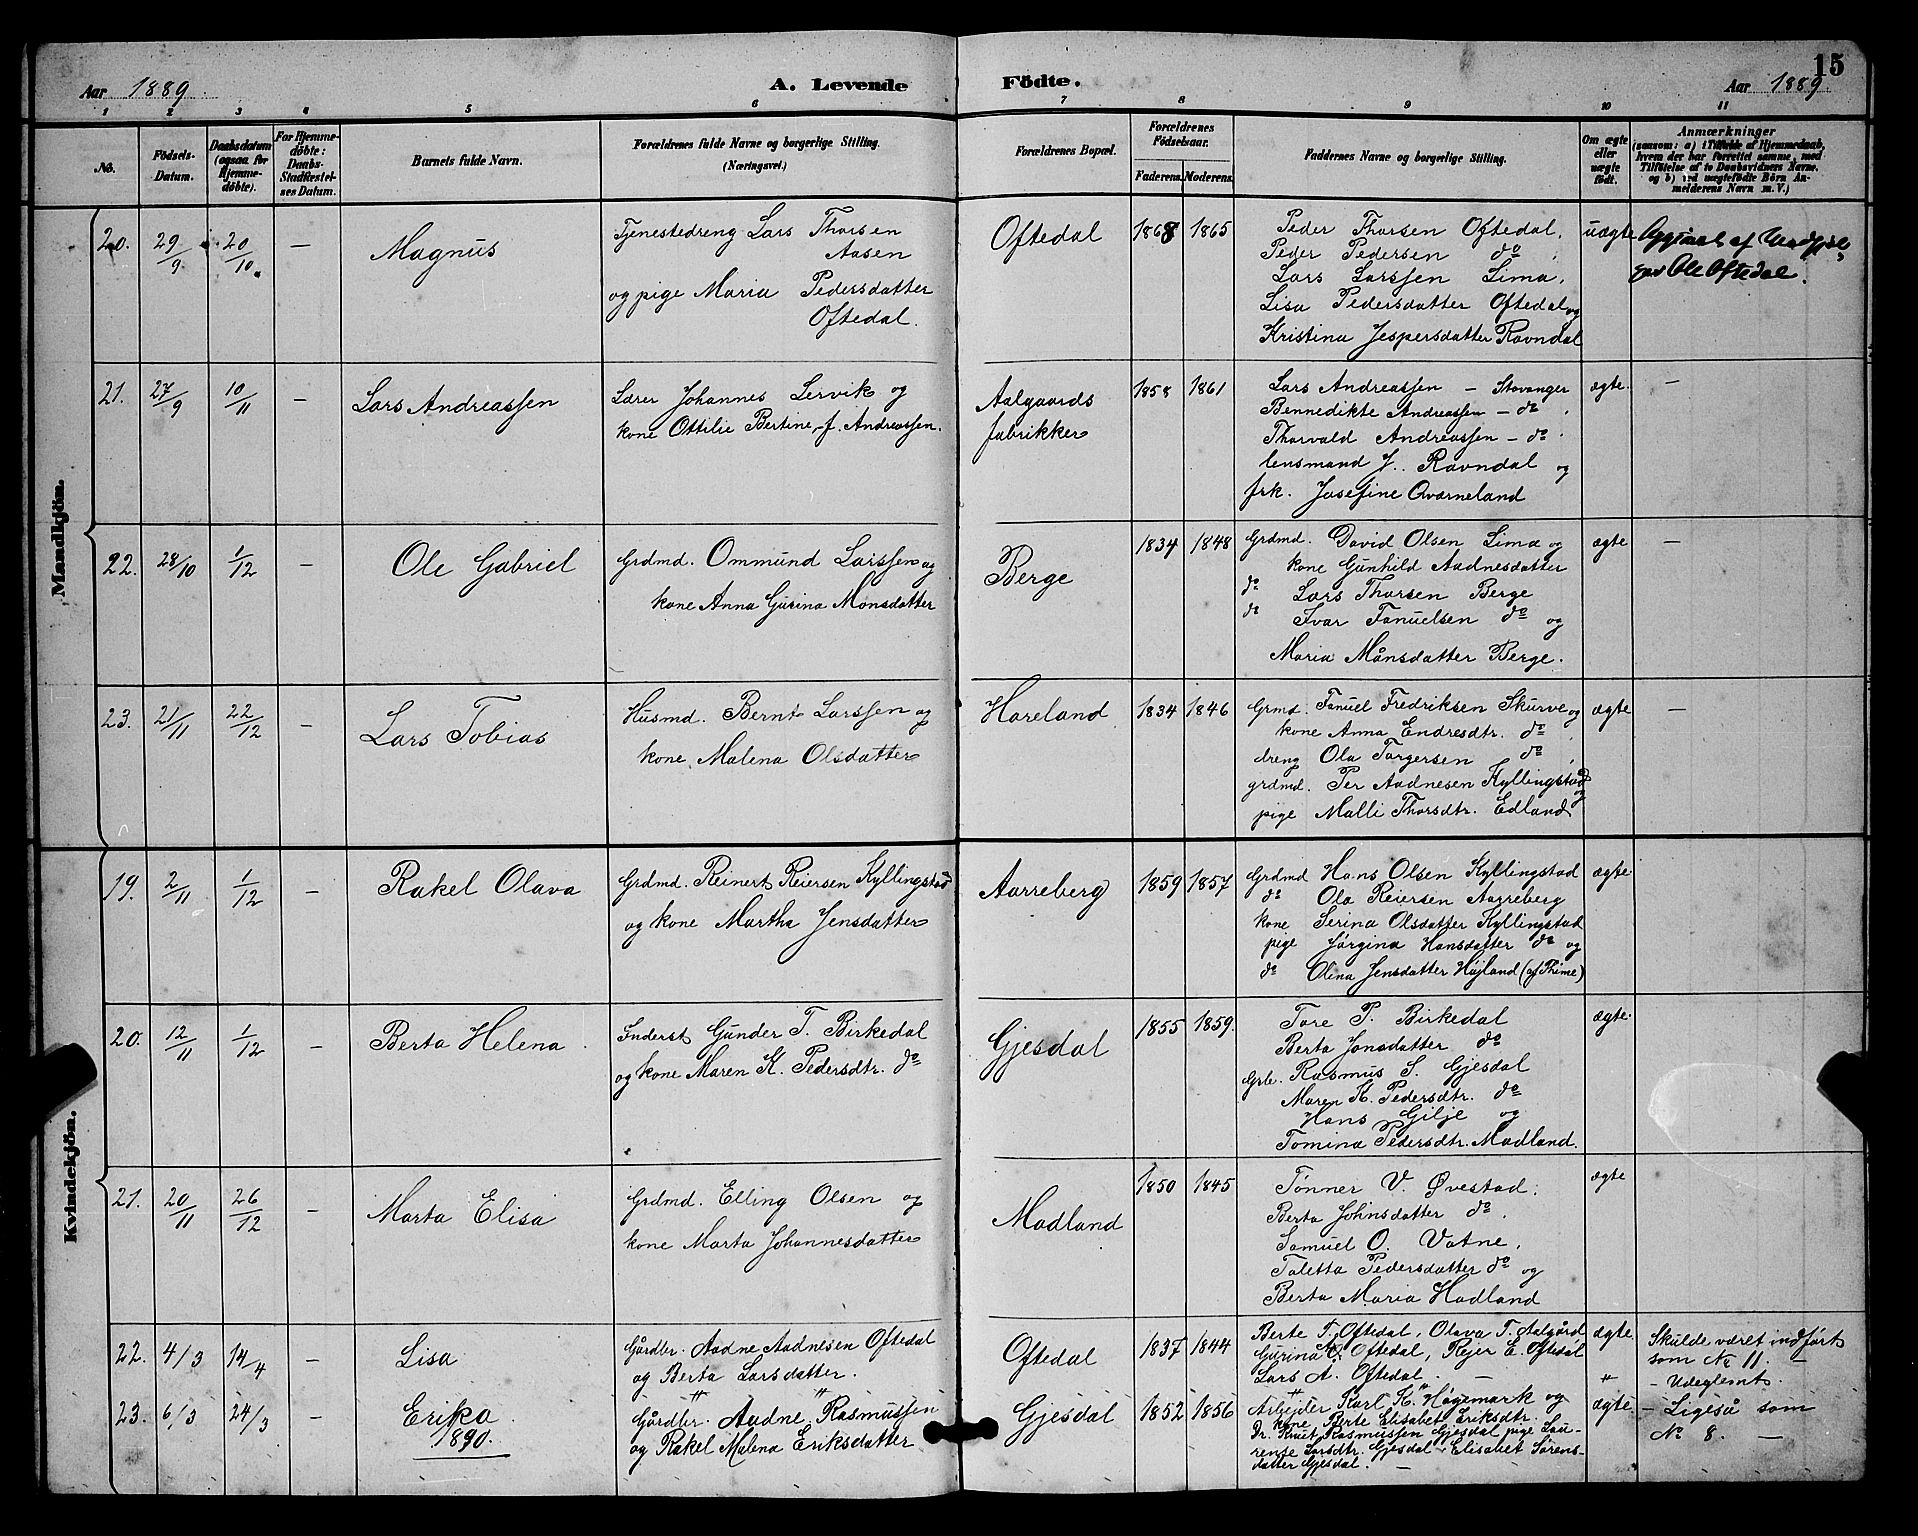 15
Aar 1889. A. Levende Födte. Aar 1889.
1 2 3 4 5 6 7 8 9 10 11
No. Födsels-Datum. Daabsdatum (ogsaa for Hjemmedöbte). For Hjemmedöbte: Daabs-Stadfæstelses Datum. Barnets fulde Navn. Forældrenes fulde Navne og borgerlige Stilling. (Næringsvei.) Forældrenes Bopæl. Forældrenes Födselsaar. Faderens. Moderens. Faddernes Navne og borgerlige Stilling. Om ægte eller uægte födt. Anmærkninger (saasom: a) i Tilfælde af Hjemmedaab, hvem der har forrettet samme, med Tilföielse af to Daabsvidners Navne, og b) ved uægtefödte Börn Anmelderens Navn m. V.)
Mandkjön.
20. 29/9 20/10. — Magnus
Tjenestedreng Lars Thorsen
Aasen
og pige Maria Pedersdatter
Oftedal.
Oftedal 1868 1865
Peder Thorsen Oftedal,
Peder Pedersen do,
Lars Larssen Lima,
Lisa Pedersdatter Oftedal og
Kristina Jespersdatter Ravndal
uægte
Ole Oftedal.
21. 27/9 10/11 — Lars Andreassen
Lærer Johannes Lervik og
kone Ottilie Bertine, f. Andreassen.
Aalgaards
fabrikker
1858 1861
Lars Andreassen — Stavanger
Bennedikte Andreassen — do,
Thorvald Andreassen — do.
lensmand J. Ravndal og
frk. Josefine Qværneland
ægte. —
22. 28/10 1/12 — Ole Gabriel
Grdmd. Ommund Larssen og
kone Anna Gurina Monsdatter
Berge 1834 1848
Grdmd. David Olsen Lima og
kone Gunhild Aadnesdatter
do Lars Thorsen Berge
do Ivar Fanuelsen do og
Maria Månsdatter Berge.
ægte —
23. 21/11 22/12 — Lars Tobias
Husmd. Bernt Larssen og
kone Malena Olsdatter
Hareland 1834 1846
Grmd. Fanuel Fredriksen Skurve og
kone Anna Endresdtr. do,
dreng Ola Torgersen do,
grdmd. Per Aadnesen Kyllingstad og
pige Malli Thorsdtr. Edland
ægte —
Kvindekjön.
19. 2/11 1/12 — Rakel Olava
Grdmd. Reinert Reiersen Kyllingstad
og kone Martha Jensdatter
Aarreberg 1859 1857
Grdmd Hans Olsen Kyllingstad
do Ola Reiersen Aarreberg
kone Serina Olsdatter Kyllingstad
pige Jørgina Hansdatter do og
do Olina Jensdatter Højland (af Thime)
ægte.
20. 12/11 1/12 — Berta Helena.
Inderst Gunder T. Birkedal
og kone Maren K. Pedersdtr. do
Gjesdal 1855 1859.
Tore P. Birkedal
Berta Jonsdatter do
Grb. Rasmus S. Gjesdal
Maren K. Pedersdtr. do
Hans Gilje og
Tomina Pedersdtr. Madland.
ægte.
21. 20/11 26/12 — Marta Elisa
Grdmd. Elling Olsen og
kone Marta Johannesdatter
Madland 1850 1845
Tønner V. Øvestad.
Berta Johnsdatter do.
Samuel O. Vatne,
Taletta Pedersdatter do og
Berta Maria Hadland
ægte
22. 4/3 14/4 — Lisa
Gårdbr. Aadne Aadnesen Oftedal
og Berta Larsdatter.
Oftedal 1837 1844
Berte T. Oftedal, Olava T. Aalgård
Gurina A. Oftedal, Rejer E. Oftedal
Lars A. Oftedal. —
ægte.
Skulde været indført
som No 11. —
23. 6/3 24/3 — Erika
1890.
Gårdbr. Aadne Rasmussen
og Rakel Malena Eriksdatter
Gjesdal 1852 1856
Arbejder Karl K. Høgemark og
kone Berte Elisabet Eriksdtr.
Dr. Knut Rasmussen Gjesdal pige Lau-
rense Larsdtr. Gjesdal. Elisabet Sørens-
datter Gjesdal. —
ægte.
— Udeglemt.
— Ligeså som
No 8. —